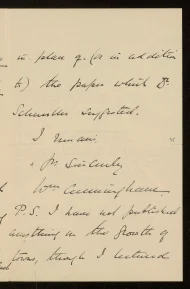 in place of (or in addition
to) the paper which Dr
Schuster suggested.
I remain
yrs Sincerely
Wm Cunningham
P.S. I have not published
anything on the Growth of
towns, though I lectured